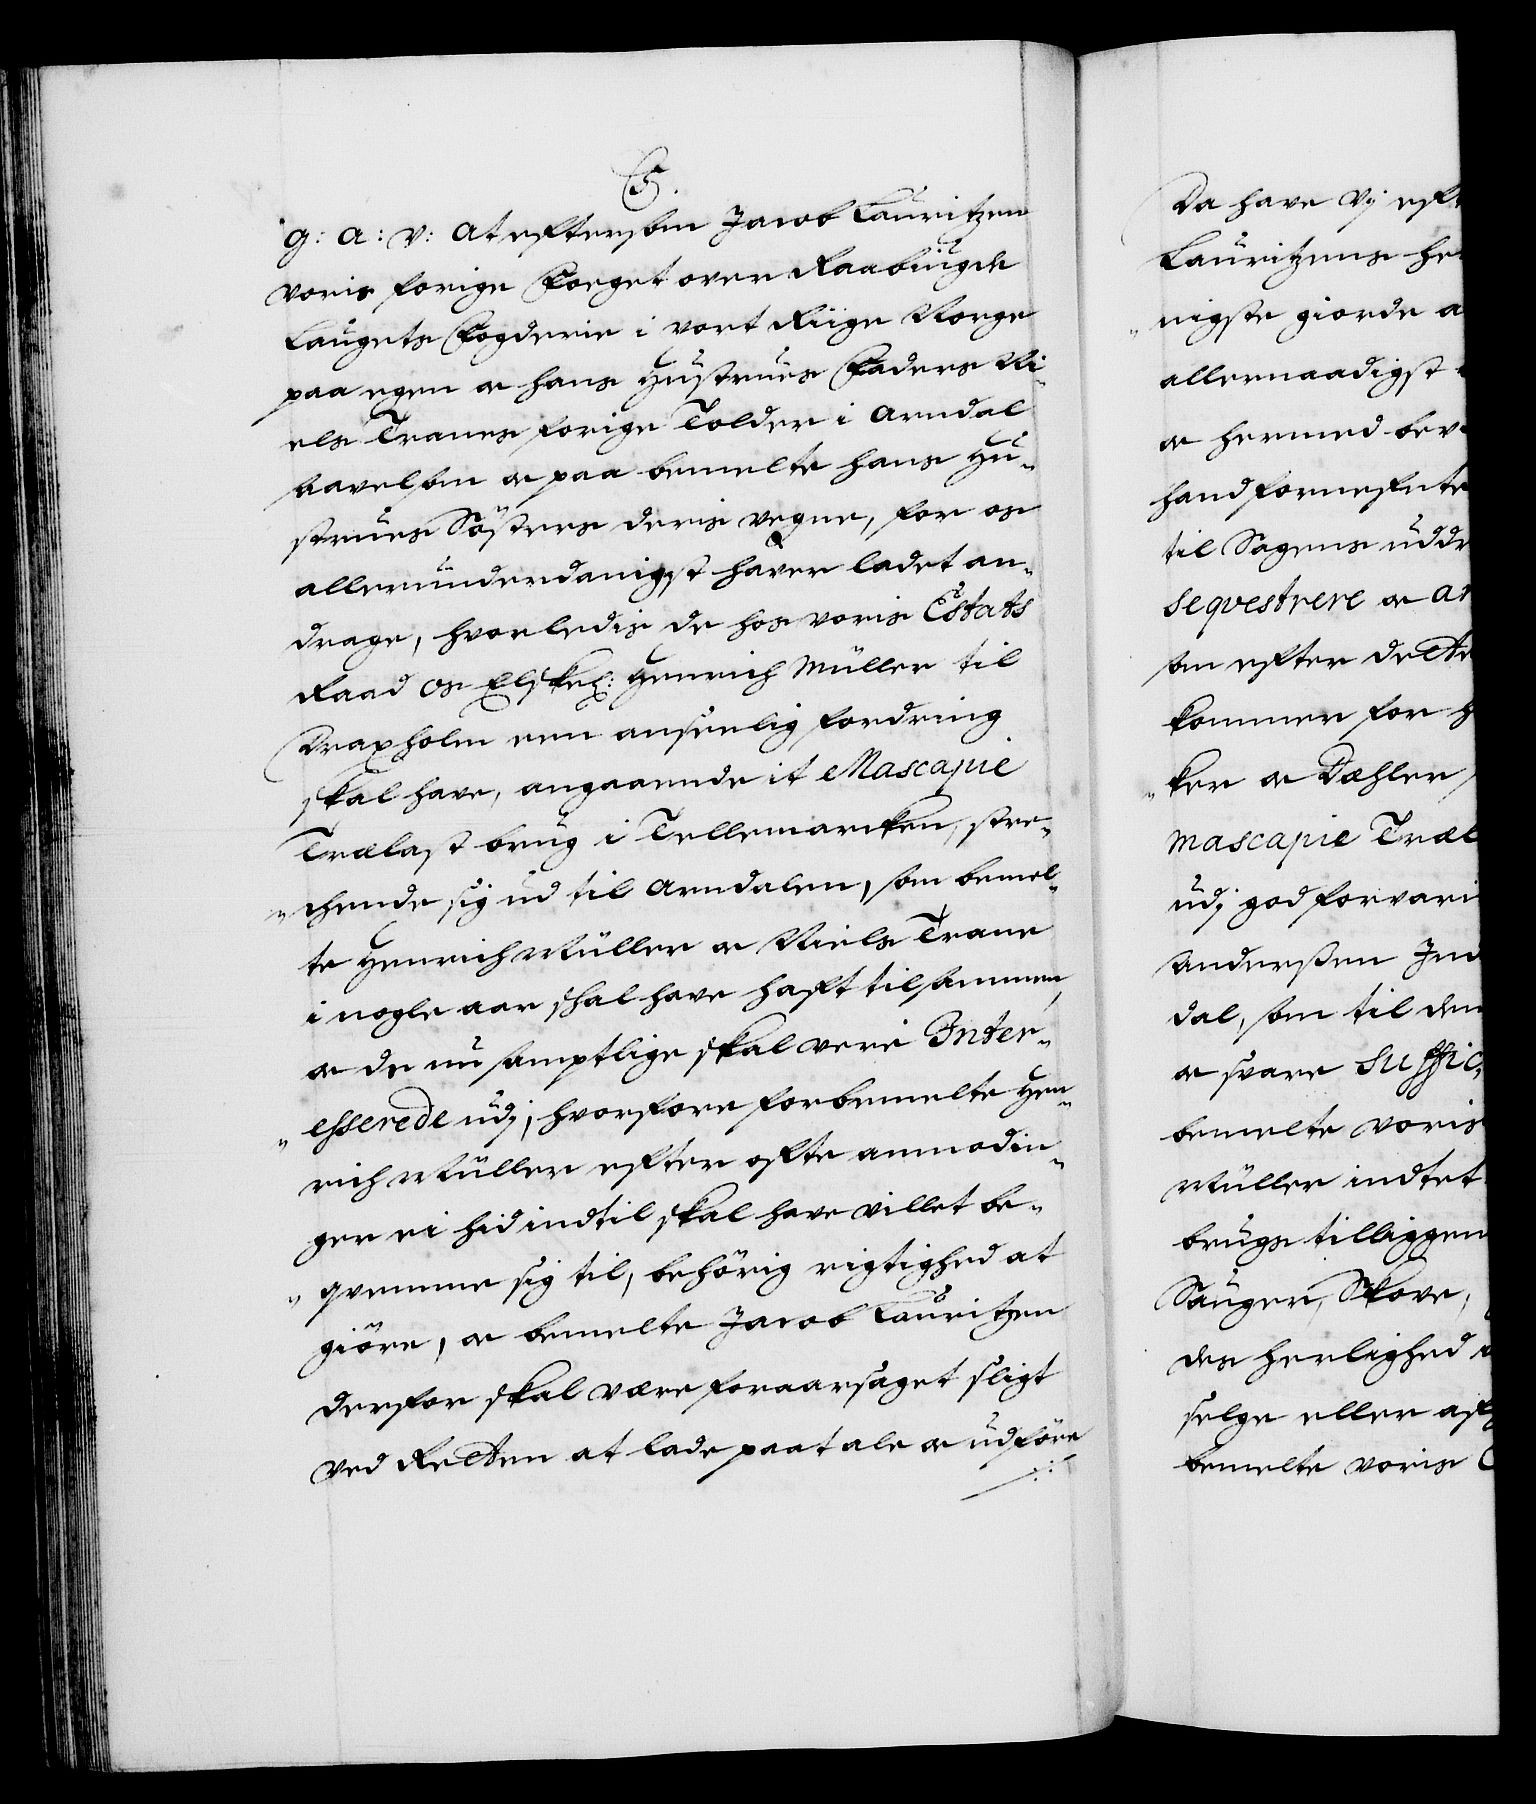 C5.
g: a: v: at eftersom Jacob Lauritzen
voris forige Foeget over Raabûigde
Laugets Fogderie i vort Riige Norge
paa egen oc hans Hustrues Faders Ni-
els Tranes forige Tolder i Arndal
saavelsom oc paa bemelte hans Hu-
strues Søsters deris vegne, for os
allerunderdanigst haver ladet an-
drage, hvorledis de hos voris Estats
Raad Os Elskel: Henrich Müller til
Draxholm een anseenlig fordring
skal have, angaaende it Mascapie
Trælast brug i Tellemarcken, stre-
chende sig ud til Arndalen, som bemel-
te Henrich Müller oc Niels Trane
i nogle aar skal have hafft tilsammen,
oc de nu samptlige skal vere Inter-
esserede udj, hvorfore forbemelte Hen-
rich Müller efter ofte anmodin-
ger ei hid indtil skal have villet be-
qvemme sig til, behörig rigtighed at
giöre, oc bemelte Jacob Lauritzen
derfor skal være foraarsaget sligt
ved Retten at lade paatale oc udföre
Da have Vj eft
Lauritzens
nigste giorde a
allernaadigst
oc hermed bev
hand fornefnte
til Sagens udd
seqvestrere oc ar
som efter dette
kommer for
ker oc Dæhler
Mascapie Træl
udj god forvari
Anderssen Ind
dal, som til den
oc svare Suffic
bemelte voris
Müller indtet
brugs tilliggen
Sauger, Skove,
des herlighed
selge eller aff
bemelte voris